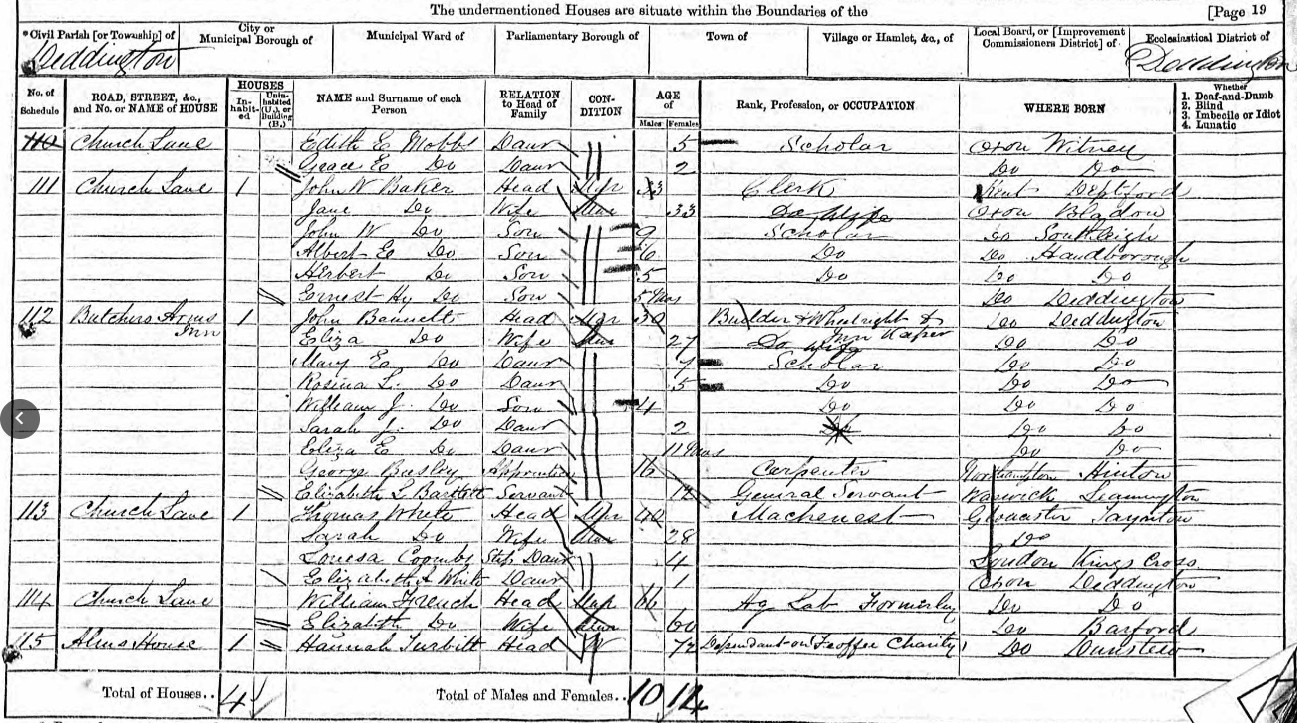 The undermentioned Houses are situate within the Boundaries of the [Page 19
*Civil Parish [or Township] of City or Municipal Borough of Municipal Ward of Parliamentary Borough of Town of Village or Hamlet, &c., of Local Board, or [Improvement Commissioners District] of Ecclesiastical District of
Deddington Deddington
No. of Schedule ROAD, STREET, &c., and No. or NAME of HOUSE HOUSES Inhabited Uninhabited (U.), or Building (B.) NAME and Surname of each Person RELATION to Head of Family CONDITION AGE of Males Females Rank, Profession, or OCCUPATION WHERE BORN Whether 1. Deaf-and-Dumb 2. Blind 3. Imbecile or Idiot 4. Lunatic
110 Church Lane Edith E Mobbs Daur 5 Scholar Oxon Witney
Grace E Do Daur 2 Do Do
111 Church Lane 1 John W Baker Head Mar 33 Clerk Kent Deptford
Jane Do Wife Mar 33 Do Wife Oxon Bladon
John W Do Son 9 Scholar Do South Leigh
Albert E Do Son 6 Do Do Handborough
Herbert Do Son 5 Do Do Do
Ernest Hy Do Son 5 Mos Do Deddington
112 Butchers Arms Inn 1 John Bennett Head Mar 30 Builder & Wheelright & Inn Keeper Do Deddington
Eliza Do Wife Mar 27 Do Wife Do Do
Mary E Do Daur 7 Scholar Do Do
Rosina L. Do Daur 5 Do Do Do
William J. Do Son 4 Do Do Do
Sarah J. Do Daur 2 Do Do Do
Eliza E Do Daur 11 Mos Do Do
George Busley Apprentice 16 Carpenter Northampton Hinton
Elizabeth L Bartlett Servant General Servant Warwick Leamington
113 Church Lane 1 Thomas White Head Mar 40 Machenest Gloucester Taynton
Sarah Do Wife Mar 28 Do
Louesa Coombs Step Daur 4 London Kings Cross
Elizabeth A White Daur 1 Oxon Deddington
114 Church Lane William French Head Mar 66 Ag Lab Formerley Do Do
Elizabeth Do Wife Mar 60 Do Barford
115 Alms House 1 Hannah Turbitt Head W 72 Dependant on Feoffee Charity Do Dunstew
Total of Houses.. 4 Total of Males and Females.. 10 14